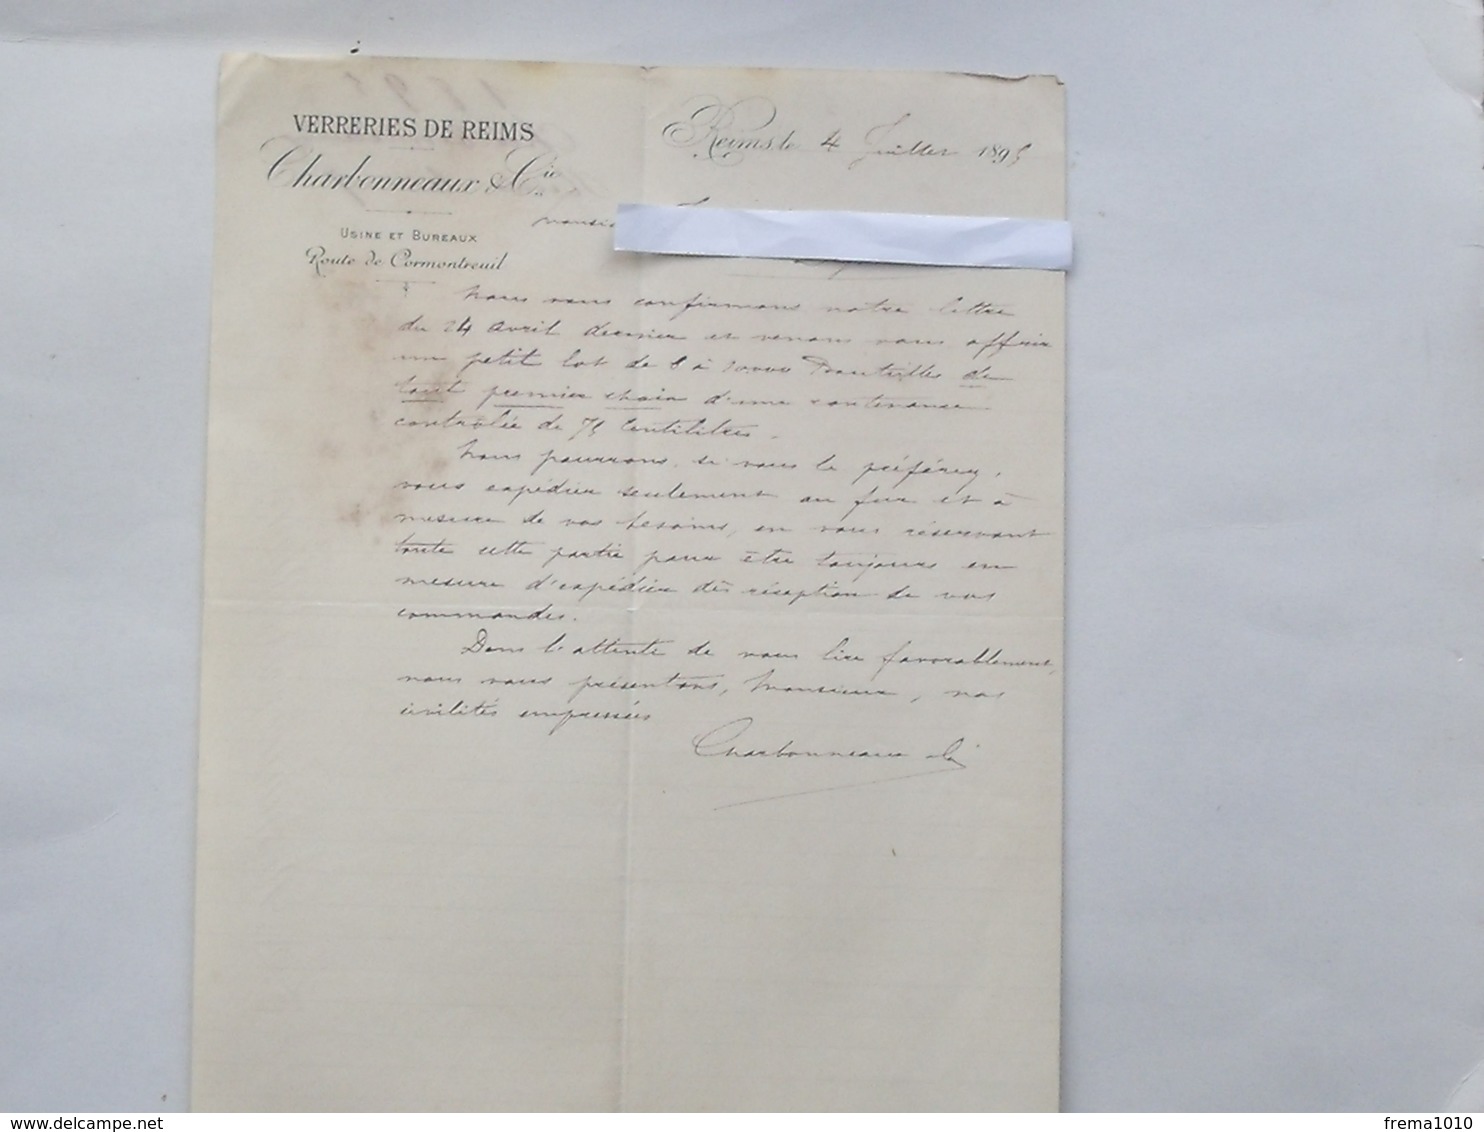 VERRERIES DE REIMS
Charbonneaux & Cie
USINE ET BUREAUX
Route de Cormontreuil
Reims, le 4 Juillet 1895
Nous vous confirmons notre lettre
du 24 avril dernier et venons vous offrir
un petit lot de 8 à 10000 Bouteilles de
tout premier choix d'une contenance
contrôlée de 75 Centilitres.
Nous pourrons, si vous le préférez,
vous expédier seulement au fur et à
mesure de vos besoins, en vous réservant
toute cette partie pour être toujours en
mesure d'expédier dès réception de vos
commandes.
Dans l'attente de vous lire favorablement,
nous vous présentons, Monsieur, nos
civilités empressées
Charbonneaux & Cie
delcampe.net
frema1010